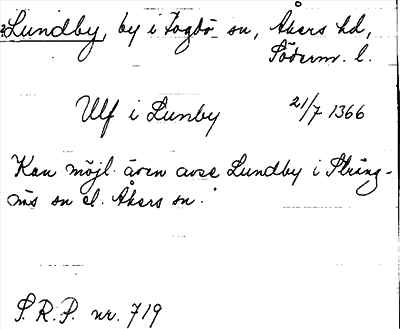 Lundby, by i Fogdö sn, Åkers hd,
Söderm. l.
Ulf i Lunby 21/7 1366
Kan möjl. även avse Lundby i Sträng-
näs sn el. Åkers sn.
S.R.P. nr. 719